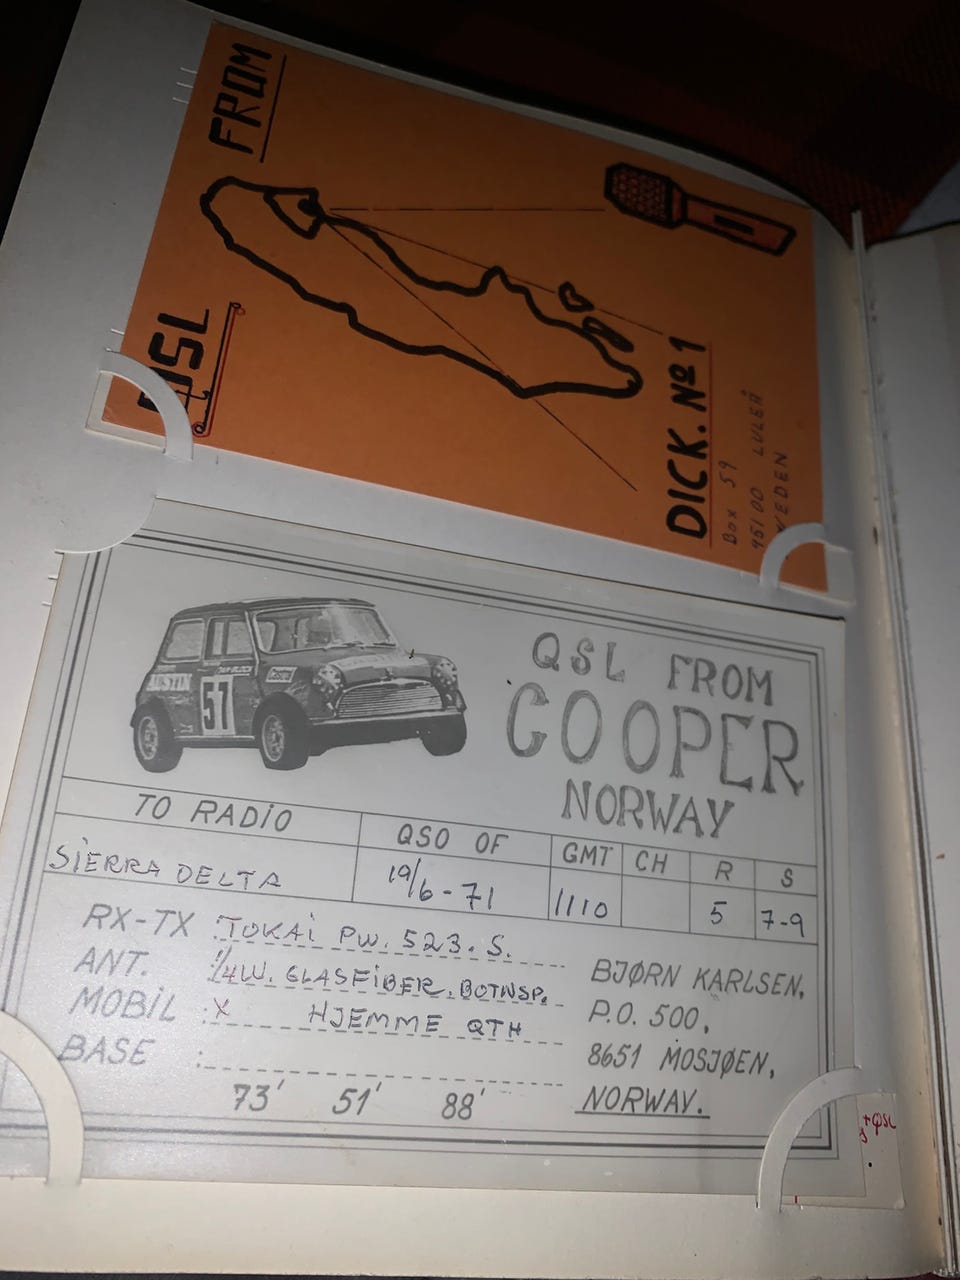 QSL FROM
DICK. Nº 1
Box 59
951 00 LULEÅ
AUSTIN
51
QSL FROM
COOPER
NORWAY
TO RADIO QSO OF GMT CH R S
SIERRA DELTA 19/6-71 1110 5 7-9
RX-TX : TOKAI PW. 523. S.
ANT. : 1/4W. GLASFIBER. BOTNSP.
MOBIL : X HJEMME QTH
BASE :
73' 51' 88'
BJØRN KARLSEN,
P.O. 500,
8651 MOSJØEN,
NORWAY.
QSL